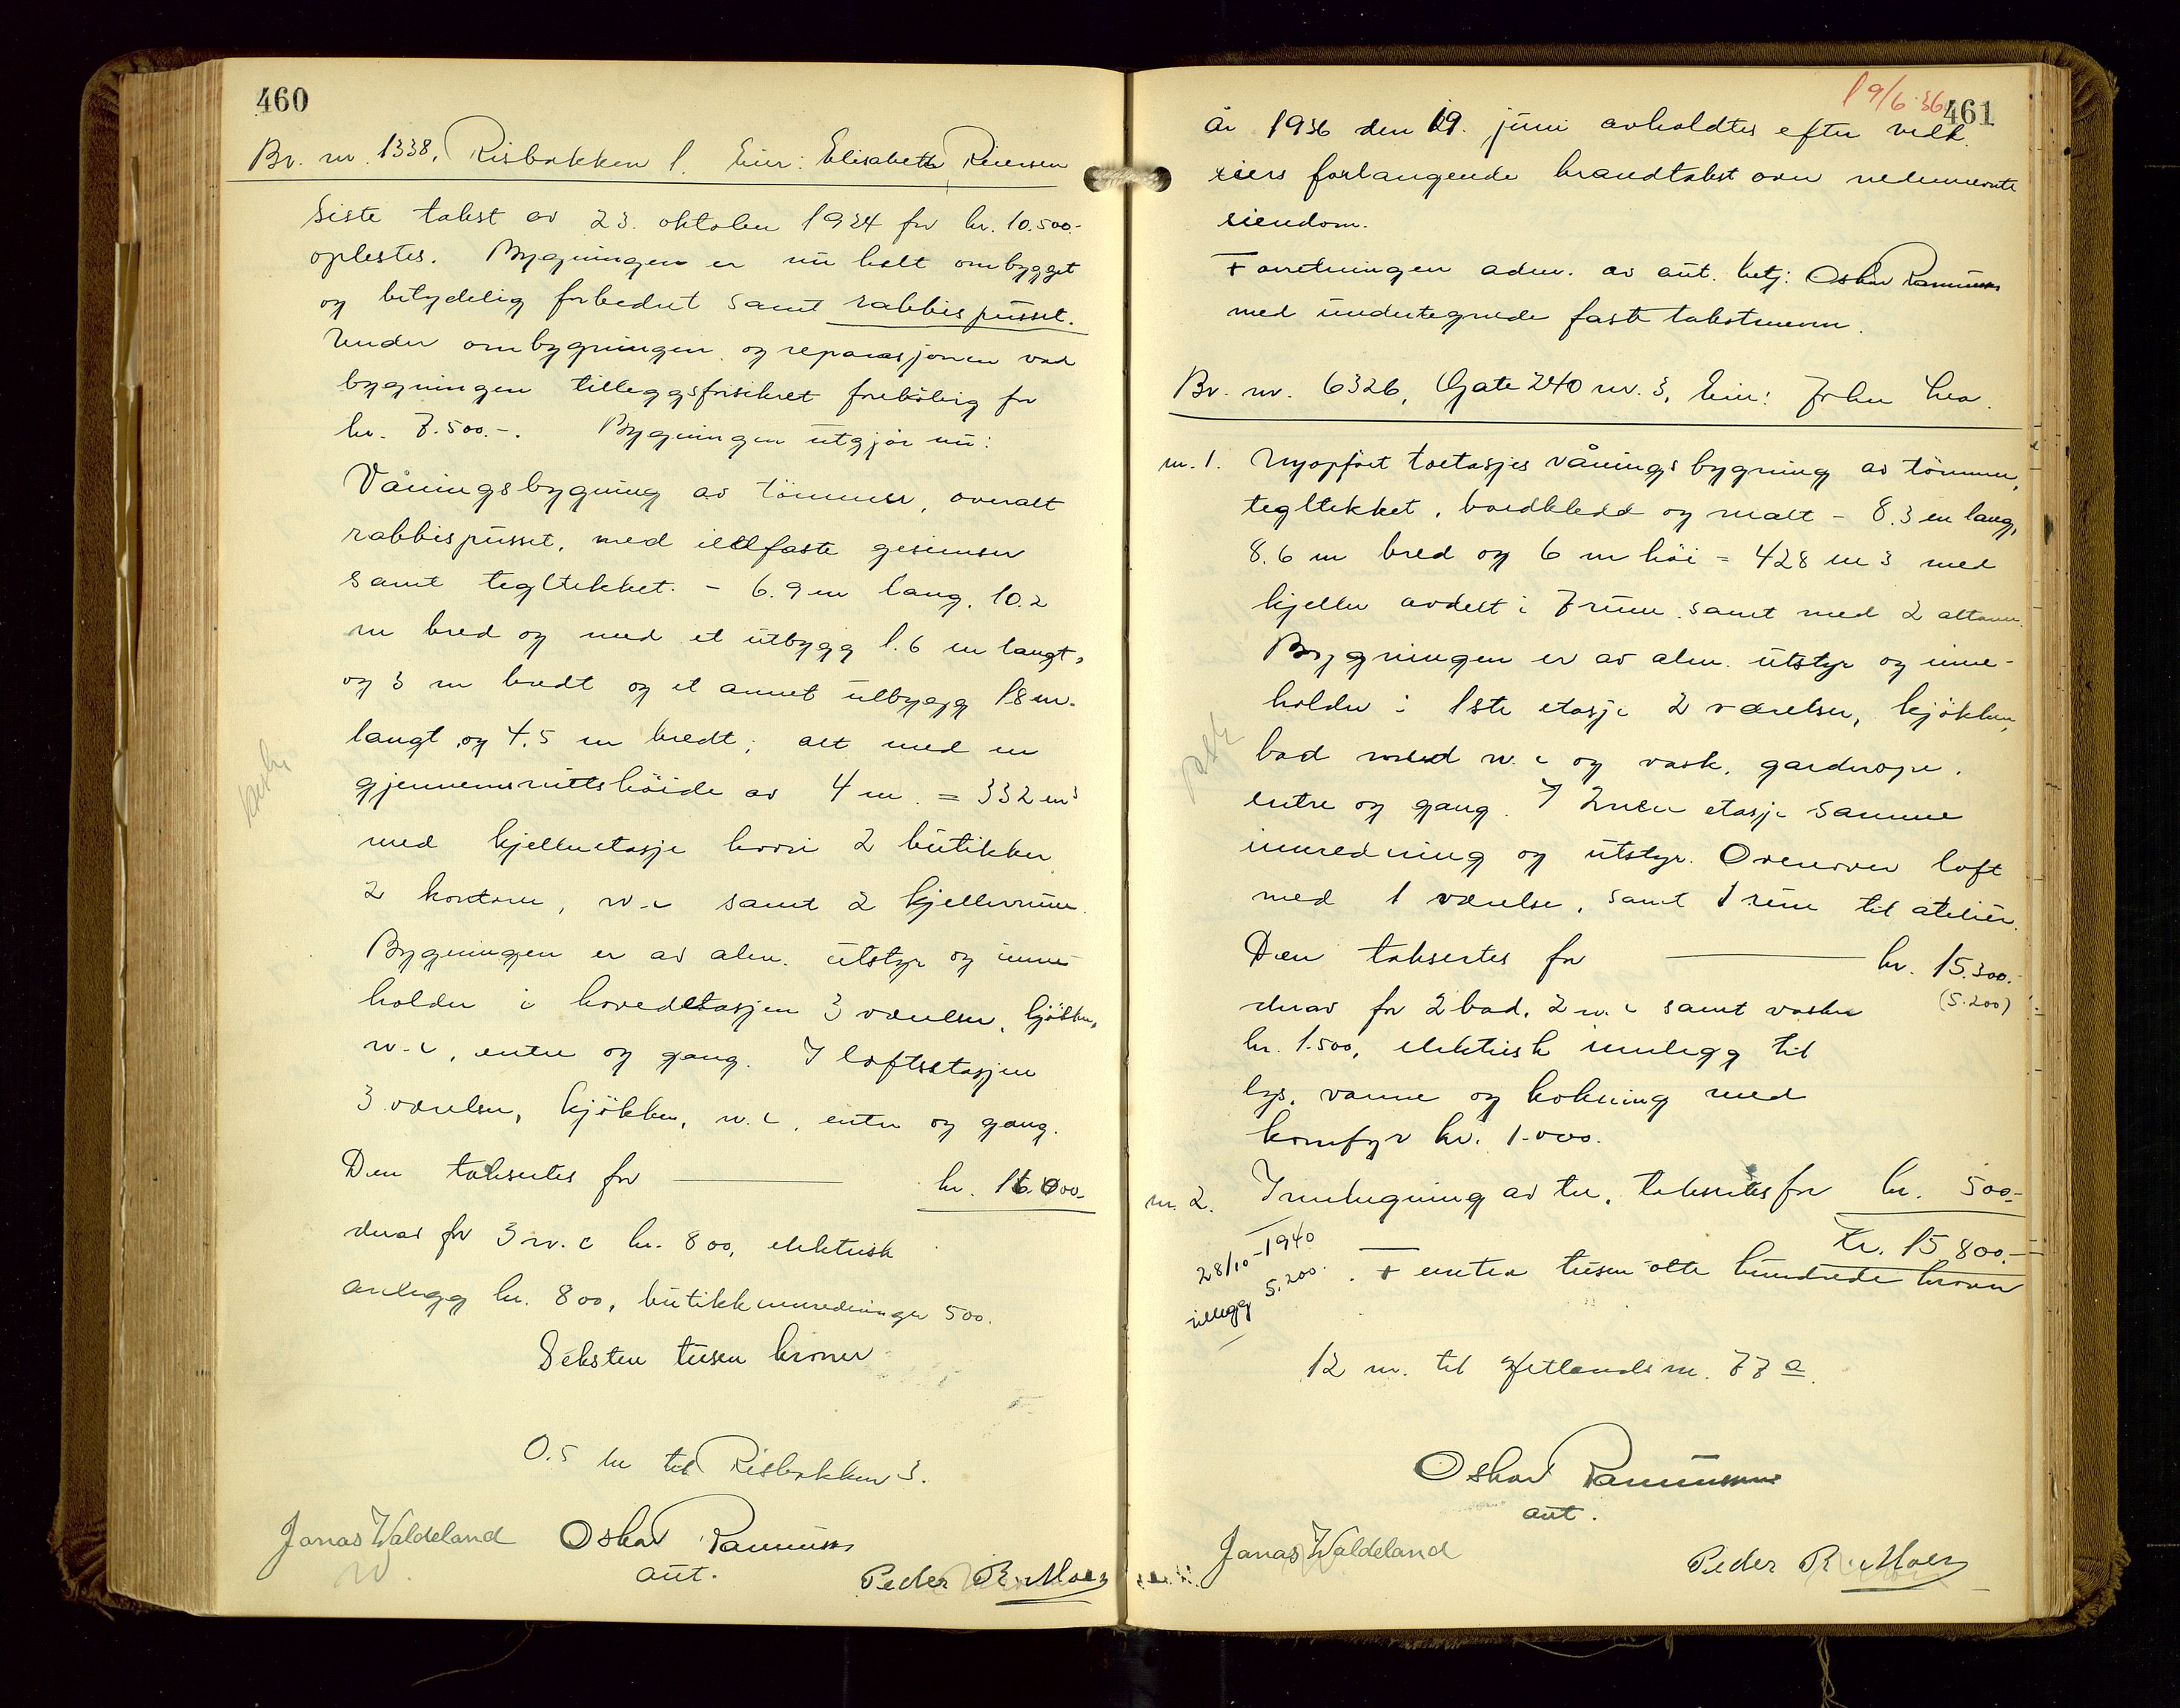 460
Br. nr. 1338, Risbakken 1. Eier: Elisabeth Reiersen
Siste takst av 23. oktober 1934 for kr. 10.500.-
oplestes. Bygningen er nu helt ombygget
og betydelig forbedret samt rabbispusset.
Under ombygningen og reparasjonen var
bygningen tilleggsforsikret foreløbig for
kr. 7.500.-. Bygningen utgjør nu:
Våningsbygning av tømmer, overalt
rabbispusset, med ildfaste gesimser
samt tegltekket. - 6.9 m lang, 10.2
m bred og med et utbygg 1.6 m langt,
og 3 m bredt og et annet utbygg 1.8 m.
langt og 4.5 m bredt; alt med en
gjennemsnittshøide av 4 m. = 332 m3
med kjelleretasje hvori 2 butikker
2 kontorer, w.c samt 2 kjellerrum.
Bygningen er av alm. utstyr og inne-
holder i hovedetasjen 3 værelser, kjøkken,
w.c, entre og gang. I loftsetasjen
3 værelser, kjøkken, w.c, entre og gang.
Den takseres for kr. 16.000.-
derav for 3 w.c kr. 800, elektrisk
anlegg kr. 800, butikkinnredninger 500.
Seksten tusen kroner
0.5 m til Risbakken 3.
Jonas Waldeland
Oskar Rasmussen
aut.
Peder R. Moen
19/6.36
461
År 1936 den 19. juni avholdtes efter vedk.
eiers forlangende brandtakst over nedennevnte
eiendom.
Forretningen adm. av aut. betj: Oskar Rasmussen
med undertegnede faste takstmenn.
Br. nr. 6326, Gate 240 nr. 3, Eier: John Lea.
nr. 1. Nyopført toetasjes våningsbygning av tømmer,
tegltekket, bordkledd og malt - 8.3 m lang,
8.6 m bred og 6 m høi = 428 m3 med
kjeller avdelt i 7 rum samt med 2 altaner.
Bygningen er av alm. utstyr og inne-
holder i 1ste etasje 2 værelser, kjøkken,
bad med w.c og vask, garderope,
entre og gang. I 2nen etasje samme
innredning og utstyr. Ovenover loft
med 1 værelse, samt 1 rum til atelier.
Den takseres for kr. 15.300.-
(5.200)
derav for 2 bad, 2 w.c samt vasker
kr. 1.500, elektrisk innlegg til
lys, varme og kokning med
komfyr kr. 1.000.
nr. 2. Innhegning av tre, takseres for kr. 500.-
Kr. 15.800.-
28/10-1940
tillegg 5.200.
Femten tusen otte hundrede kroner
12 m. til Hetlandsm. 77 a.
Oskar Rasmussen
aut.
Jonas Waldeland
Peder R. Moen